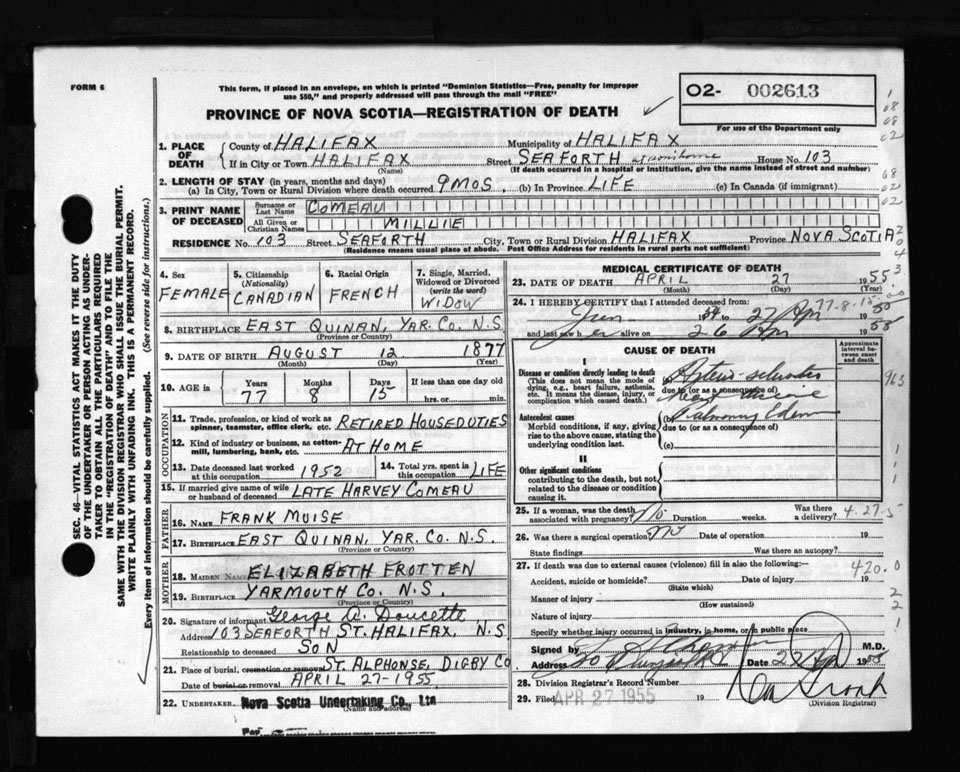 FORM 6
This form, if placed in an envelope, on which is printed "Dominion Statistics—Free, penalty for improper
use $50," and properly addressed will pass through the mail "FREE"
PROVINCE OF NOVA SCOTIA—REGISTRATION OF DEATH
02- 002613
For use of the Department only
1. PLACE OF DEATH
County of HALIFAX Municipality of HALIFAX
If in City or Town HALIFAX Street SEAFORTH House No. 103
(Name) (If death occurred in a hospital or institution, give the name instead of street and number)
2. LENGTH OF STAY (in years, months and days)
(a) In City, Town or Rural Division where death occurred 9 MOS, (b) In Province LIFE (c) In Canada (if immigrant)
3. PRINT NAME OF DECEASED
Surname or Last Name COMEAU
All Given or Christian Names MILLIE
RESIDENCE No. 103 Street SEAFORTH City, Town or Rural Division HALIFAX Province NOVA SCOTIA
(Residence means usual place of abode. Post Office Address for residents in rural parts not sufficient)
4. Sex FEMALE
5. Citizenship (Nationality) CANADIAN
6. Racial Origin FRENCH
7. Single, Married, Widowed or Divorced (write the word) WIDOW
8. BIRTHPLACE EAST QUINAN, YAR. CO. N.S.
(Province or Country)
9. DATE OF BIRTH AUGUST 12 1877
(Month) (Day) (Year)
10. AGE in Years 77 Months 8 Days 15 If less than one day old
hrs. or min.
OCCUPATION
11. Trade, profession, or kind of work as spinner, teamster, office clerk, etc. RETIRED HOUSEDUTIES
12. Kind of industry or business, as cotton-mill, lumbering, bank, etc. AT HOME
13. Date deceased last worked at this occupation 1952
14. Total yrs. spent in this occupation LIFE
15. If married give name of wife or husband of deceased LATE HARVEY COMEAU
FATHER
16. NAME FRANK MUISE
17. BIRTHPLACE EAST QUINAN, YAR. CO. N.S.
(Province or Country)
MOTHER
18. MAIDEN NAME ELIZABETH FROTTEN
19. BIRTHPLACE YARMOUTH CO. N.S.
(Province or Country)
20. Signature of informant George A. Doucette
Address 103 SEAFORTH ST. HALIFAX, N.S.
Relationship to deceased SON
21. Place of burial, cremation or removal ST. ALPHONSE, DIGBY CO
Date of burial or removal APRIL 27-1955
22. UNDERTAKER Nova Scotia Undertaking Co., Ltd
(Name and address)
Per
MEDICAL CERTIFICATE OF DEATH
23. DATE OF DEATH APRIL 27 1955
(Month) (Day) (Year)
24. I HEREBY CERTIFY that I attended deceased from:
54 to 27 Apr 1955
77-8-15
and last saw her alive on 26 Apr 1955
CAUSE OF DEATH
Approximate interval between onset and death
I
Disease or condition directly leading to death
(This does not mean the mode of dying, e.g., heart failure, asthenia, etc. It means the disease, injury, or complication which caused death.)
(a)
due to (or as a consequence of)
Antecedent causes
Morbid conditions, if any, giving rise to the above cause, stating the underlying condition last.
(b)
due to (or as a consequence of)
(c)
II
Other significant conditions
contributing to the death, but not related to the disease or condition causing it.
25. If a woman, was the death associated with pregnancy? No Duration weeks. Was there a delivery?
4-27-5
26. Was there a surgical operation? No Date of operation 19
State findings Was there an autopsy?
27. If death was due to external causes (violence) fill in also the following:—
420.0
Accident, suicide or homicide? Date of injury 19
(State which)
Manner of injury
(How sustained)
Nature of injury
Specify whether injury occurred in industry, in home, or in public place
Signed by M.D.
Address Date 27 Apr 1955
28. Division Registrar's Record Number
29. Filed APR 27 1955 19
(Division Registrar)
SEC. 46—VITAL STATISTICS ACT MAKES IT THE DUTY
OF THE UNDERTAKER OR PERSON ACTING AS UNDER-
TAKER TO OBTAIN ALL THE PARTICULARS REQUIRED
IN THE "REGISTRATION OF DEATH" AND TO FILE THE
SAME WITH THE DIVISION REGISTRAR WHO SHALL ISSUE THE BURIAL PERMIT.
WRITE PLAINLY WITH UNFADING INK. THIS IS A PERMANENT RECORD.
Every item of information should be carefully supplied. (See reverse side for instructions.)